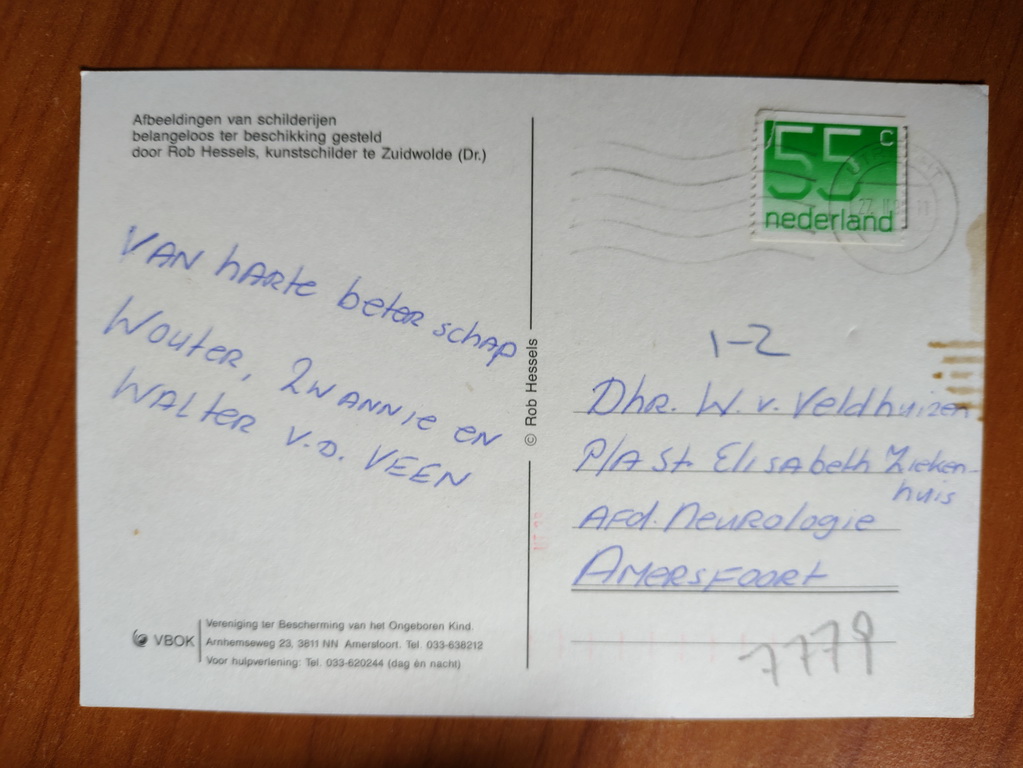 Afbeeldingen van schilderijen
belangeloos ter beschikking gesteld
door Rob Hessels, kunstschilder te Zuidwolde (Dr.)
VAN hARte beterschap
Wouter, Zwannie en
Walter v.d. Veen
VBOK
Vereniging ter Bescherming van het Ongeboren Kind.
Arnhemseweg 23, 3811 NN Amersfoort. Tel. 033-638212
Voor hulpverlening: Tel. 033-620244 (dag èn nacht)
© Rob Hessels
55 c
nederland
1-2
Dhr. W. v. Veldhuizen
P/A St. Elisabeth Zieken-
huis
Afd. Neurologie
Amersfoort
7779